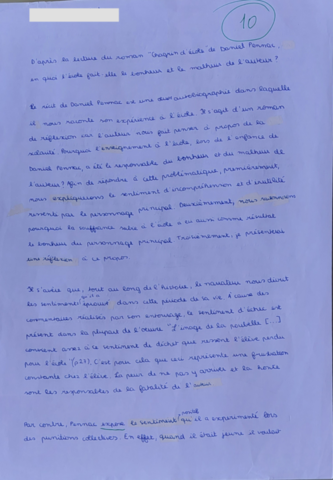 10
D'après la lecture du roman "Chagrin d'école" de Daniel Pennac,
en quoi l'école fait elle le bonheur et le malheur de l'auteur?
Le récit de Daniel Pennac est une autobiographie dans laquelle
il nous raconte son expérience à l'école. Il s'agit d'un roman
de réflexion où l'auteur nous fait penser à propos de la
Pourquoi l'enseignement à l'école, lors de l'enfance de
Daniel Pennac, a été le responsable du bonheur et du malheur de
l'auteur? Afin de répondre à cette problématique, premièrement,
nous expliquerons le sentiment d'incompréhension et d'inutilité
ressenti par le personnage principal. Deuxièmement, nous
pourquoi la souffrance à l'école a eu aussi comme
le bonheur du personnage principal. Troisièmement, je présenterai
une réflexion à ce propos.
Il s'avère que, tout au long de l'histoire, le narrateur nous décrit
les sentiments dans cette période de sa vie. À cause des
commentaires réalisés par son entourage, le sentiment d'échec est
présent dans la plupart de l'oeuvre "L'image de la poubelle (...)
convient assez à ce sentiment de déchet que ressent l'élève perdu
pour l'école" (p23). C'est pour cela que ceci représente une frustration
constante chez l'élève. La peur de ne pas y arriver et la honte
sont les responsables de la fatalité de l'
Par contre, Pennac le sentiment qu'il a expérimenté lors
des punitions collectives. En effet, quand il était jeune il voulait